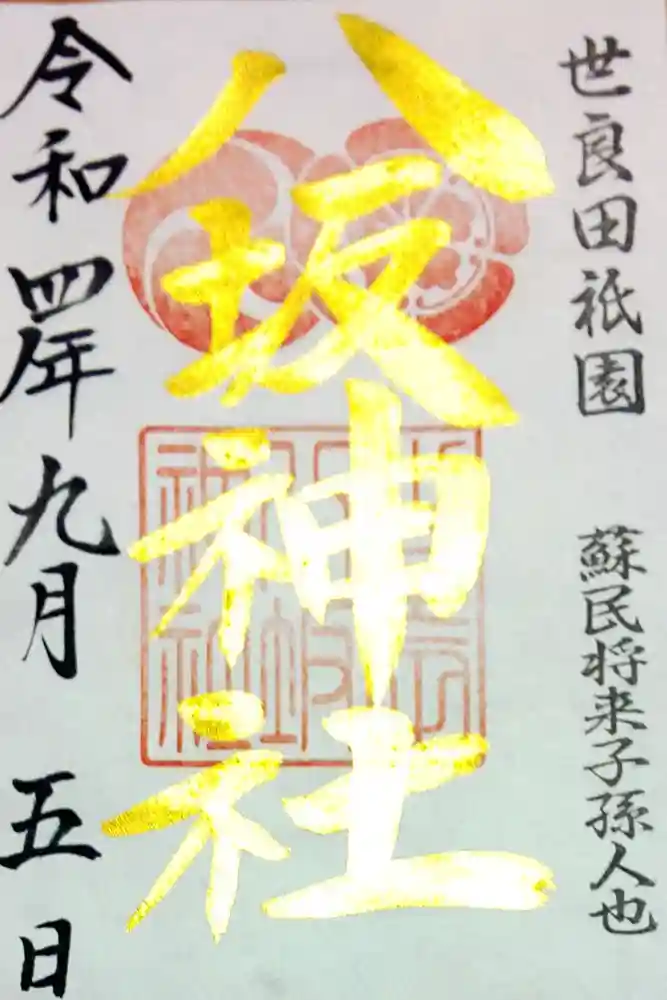 世良田祇園 蘇民将来子孫人也
八坂神社
令和四年九月五日